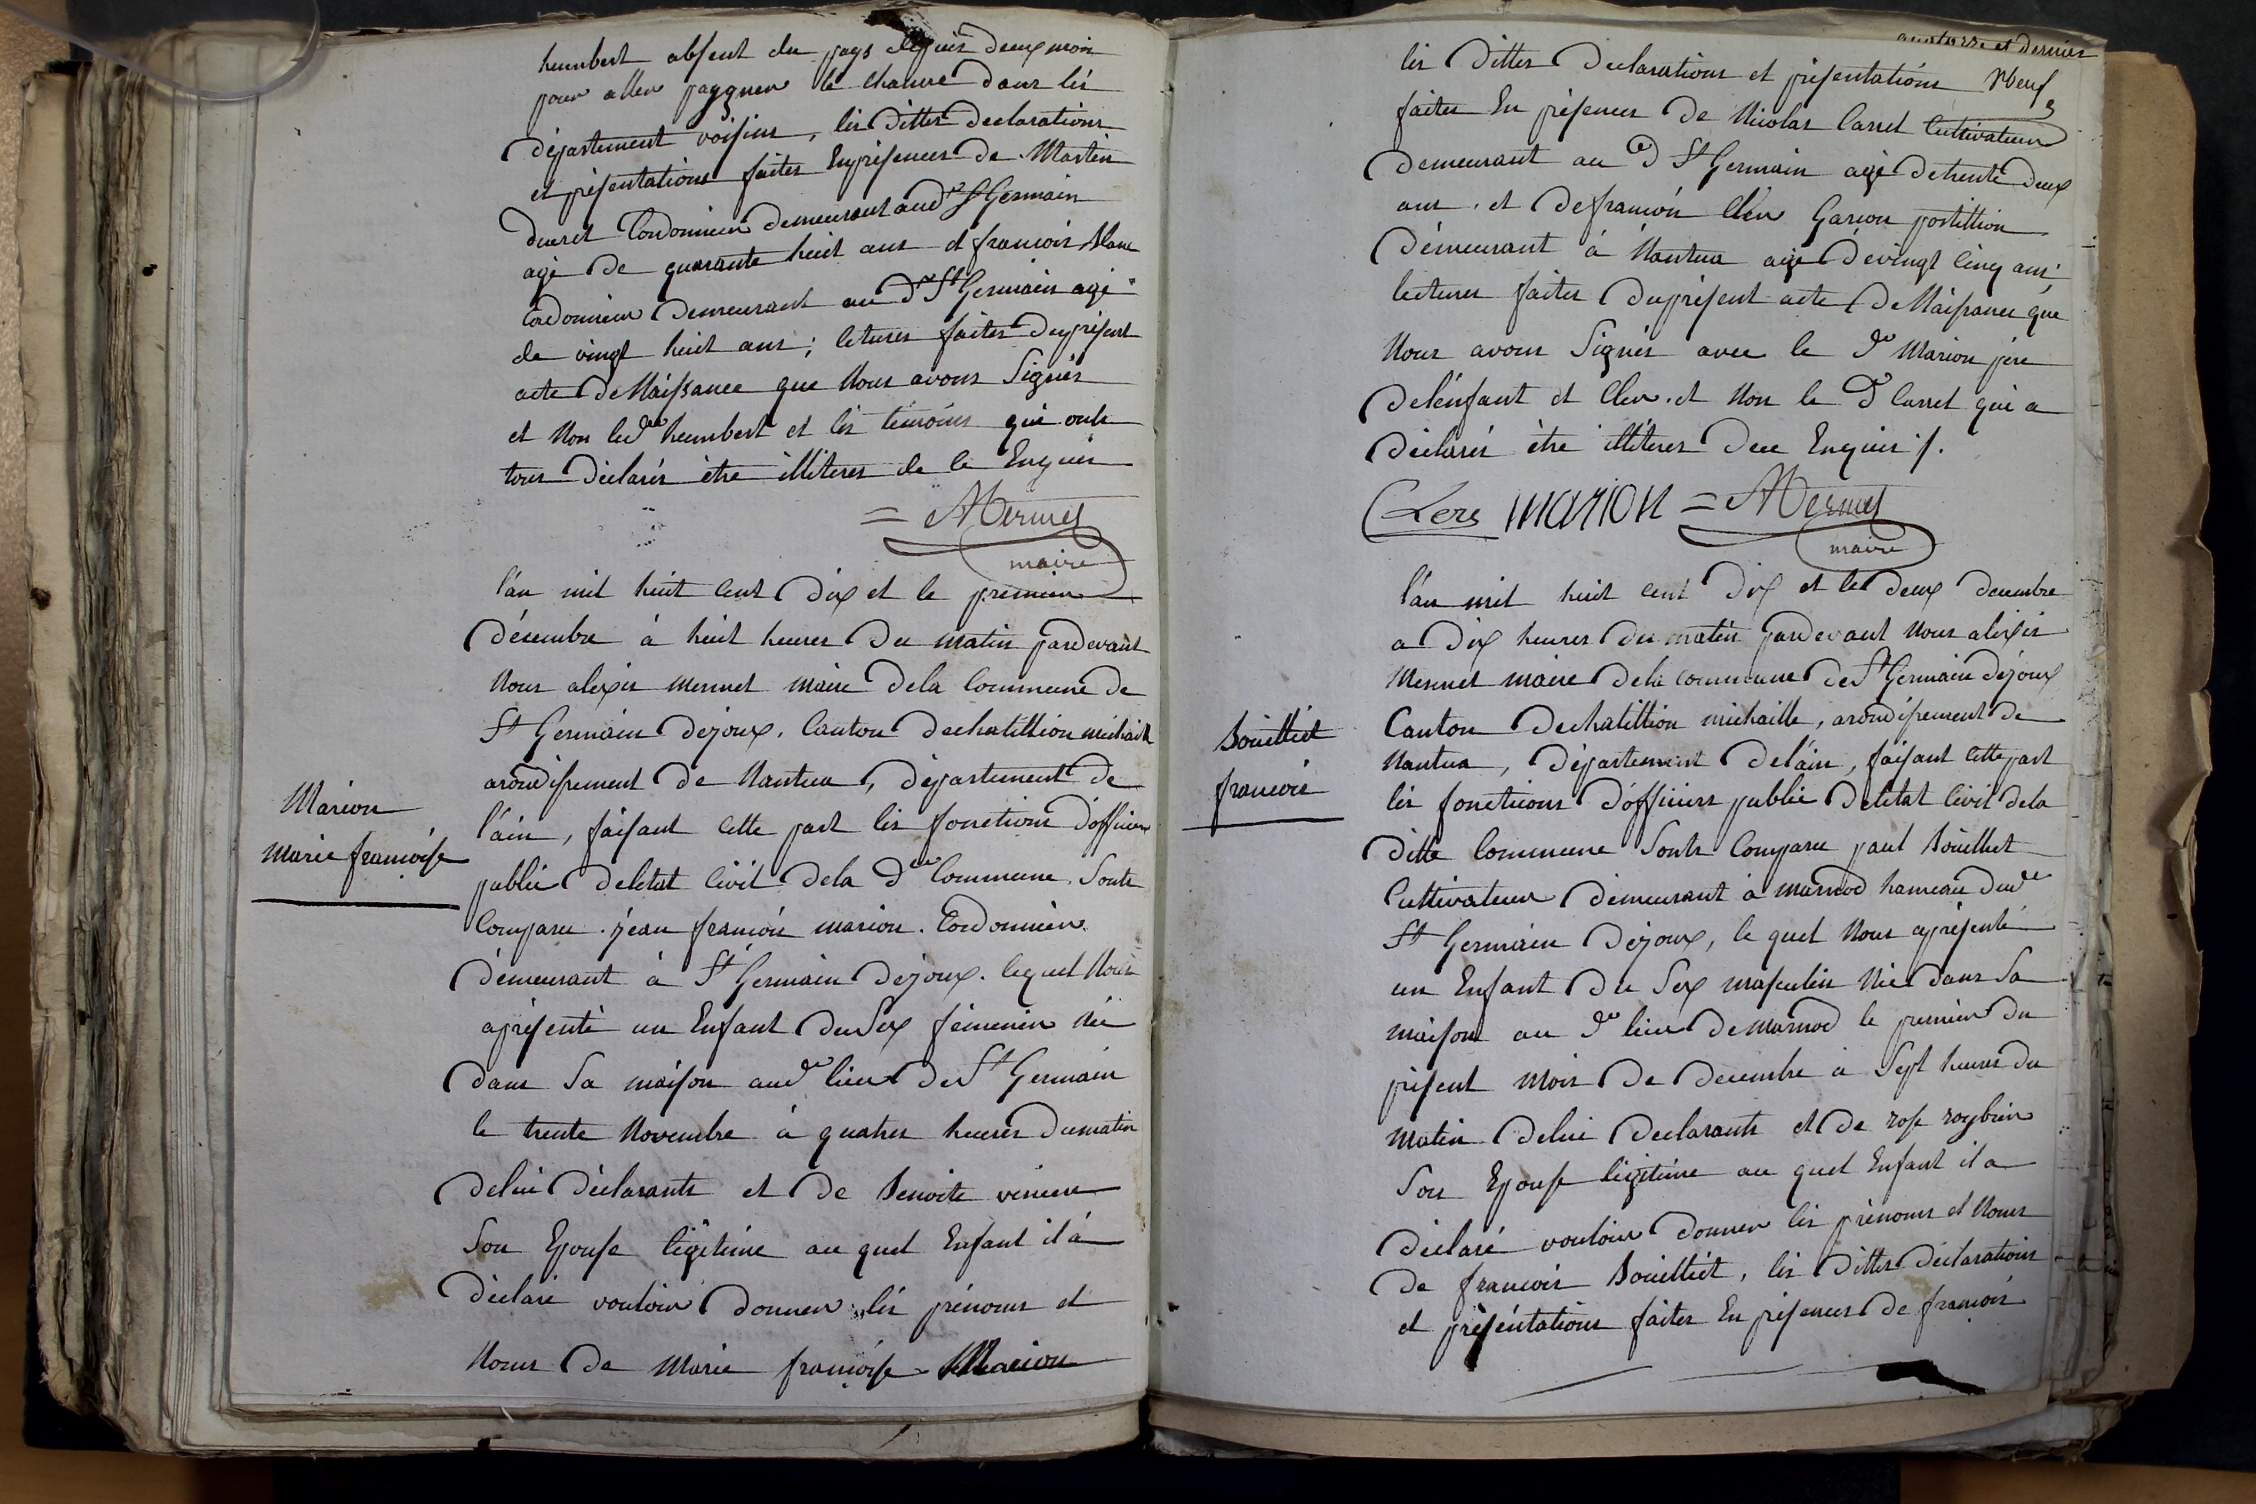 humbert absent du pays depuis deux mois
pour aller paygner le chanvre dans lés
département voisins, les dittes declarations
et présentations faites En présences de Martin
ducret Cordonnier demeurant aud.t St Germain
agé de quarante huit ans et francois Blanc
Cordonnier demeurant au d.t St Germain agé
de vingt huit ans; letures faites du présent
acte de Naissance que Nous avons Signés
et Non led.t humbert et les témoins qui onts
tous déclarés être illiteres de ce Enquis
= AMermet
maire
l'an mil huit cent dix et le premier
désembre à huit heures du matin pardevant
Nous alexis mermet maire de la Commune de
St Germain dejoux. Canton de chatillion michaille
arondisement de Nantua, département de
l'ain, faisant cette part les fonctions d'officier
public de létat Civil de la d.te Commune Sonts
Comparu. jean francois marion. Cordonnier
demeurant à St Germain dejoux. lequel Nous
a présenté un Enfant du Sex féminin Né
dans Sa maison aud.t lieu de St Germain
le trente Novembre à quatres heures du matin
de lui déclarants et de Benoite
Son Epouse légitime au quel Enfant il á
déclaré vouloir donner lés prénoms et
Noms de Marie françoise Marion
Marion
Marie françoise
quatorze et dernier
les dittes declarations et présentations Neuf
faites En présences de Nicolas Carret Cultivateur
demeurant au d.t St Germain agé de trente deux
ans. et de francois Clér Garcon postillion
démeurant à Nantua agé de vingt cinq ans;
lectures faites du présent acte de Naissances que
Nous avons Signés avec le d.t Marion pére
de l'énfant et Cler. et Non le d.t Carret qui a
déclarés être illiteres de ce Enquis /.
Clere MARION = AMermet
maire
l'an mil huit cent dix et le deux decembre
a dix heures du matin pardevant Nous alexis
Mermet maire de la commune de St Germain dejoux
Canton de chatillion michaille, arondisement de
Nantua, département de l'áin, faisant cette part
lés fonctions d'officiers public de létat Civil de la
ditte Commune Sonts Comparu paul Bouilliet
Cultivateur démeurant à marnod hameau dud.t
St Germain dejoux, le quel Nous a présenté
un Enfant du Sex masculin Né dans Sa
maison au d.t lieu de marnod le premier du
présent mois de decembre à Sept heures du
matin de lui declarants et de rose roybier
Son Epouse légitime au quel Enfant il a
déclaré vouloir donner les prénoms et Noms
de francois Bouilliet, les dittes déclarations
et présentations faites En présences de francois
Bouilliet
francois